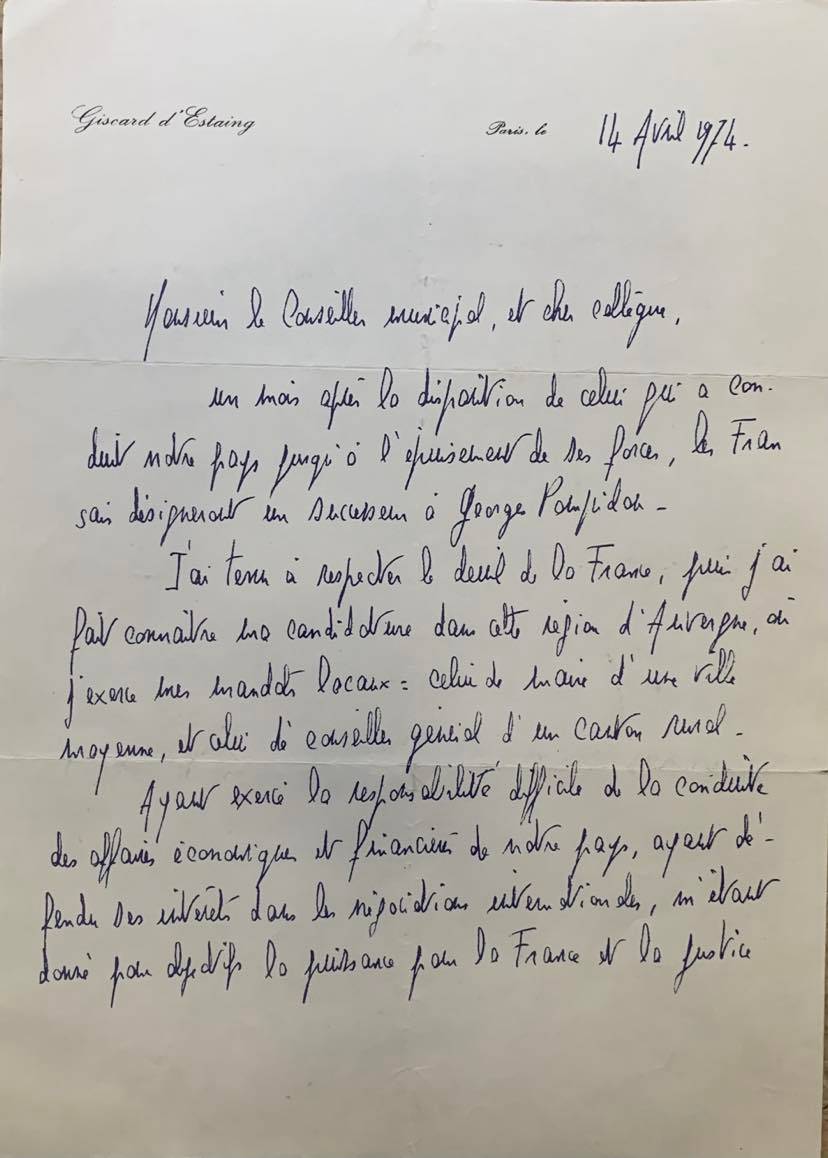 Giscard d'Estaing
Paris, le 14 Avril 1974.
Monsieur le Conseiller municipal, et cher collègue,
un mois après la disparition de celui qui a con-
duit notre pays jusqu'à l'épuisement de ses forces, les Fran
çais désigneront un successeur à Georges Pompidou -
J'ai tenu à respecter le deuil de la France, puis j'ai
fait connaître ma candidature dans cette région d'Auvergne, où
j'exerce mes mandats locaux : celui de maire d'une ville
moyenne, et celui de conseiller général d'un canton rural -
Ayant exercé la responsabilité difficile de la conduite
des affaires économiques et financières de notre pays, ayant dé-
fendu ses intérêts dans les négociations internationales, m'étant
donné pour objectifs la puissance pour la France et la justice